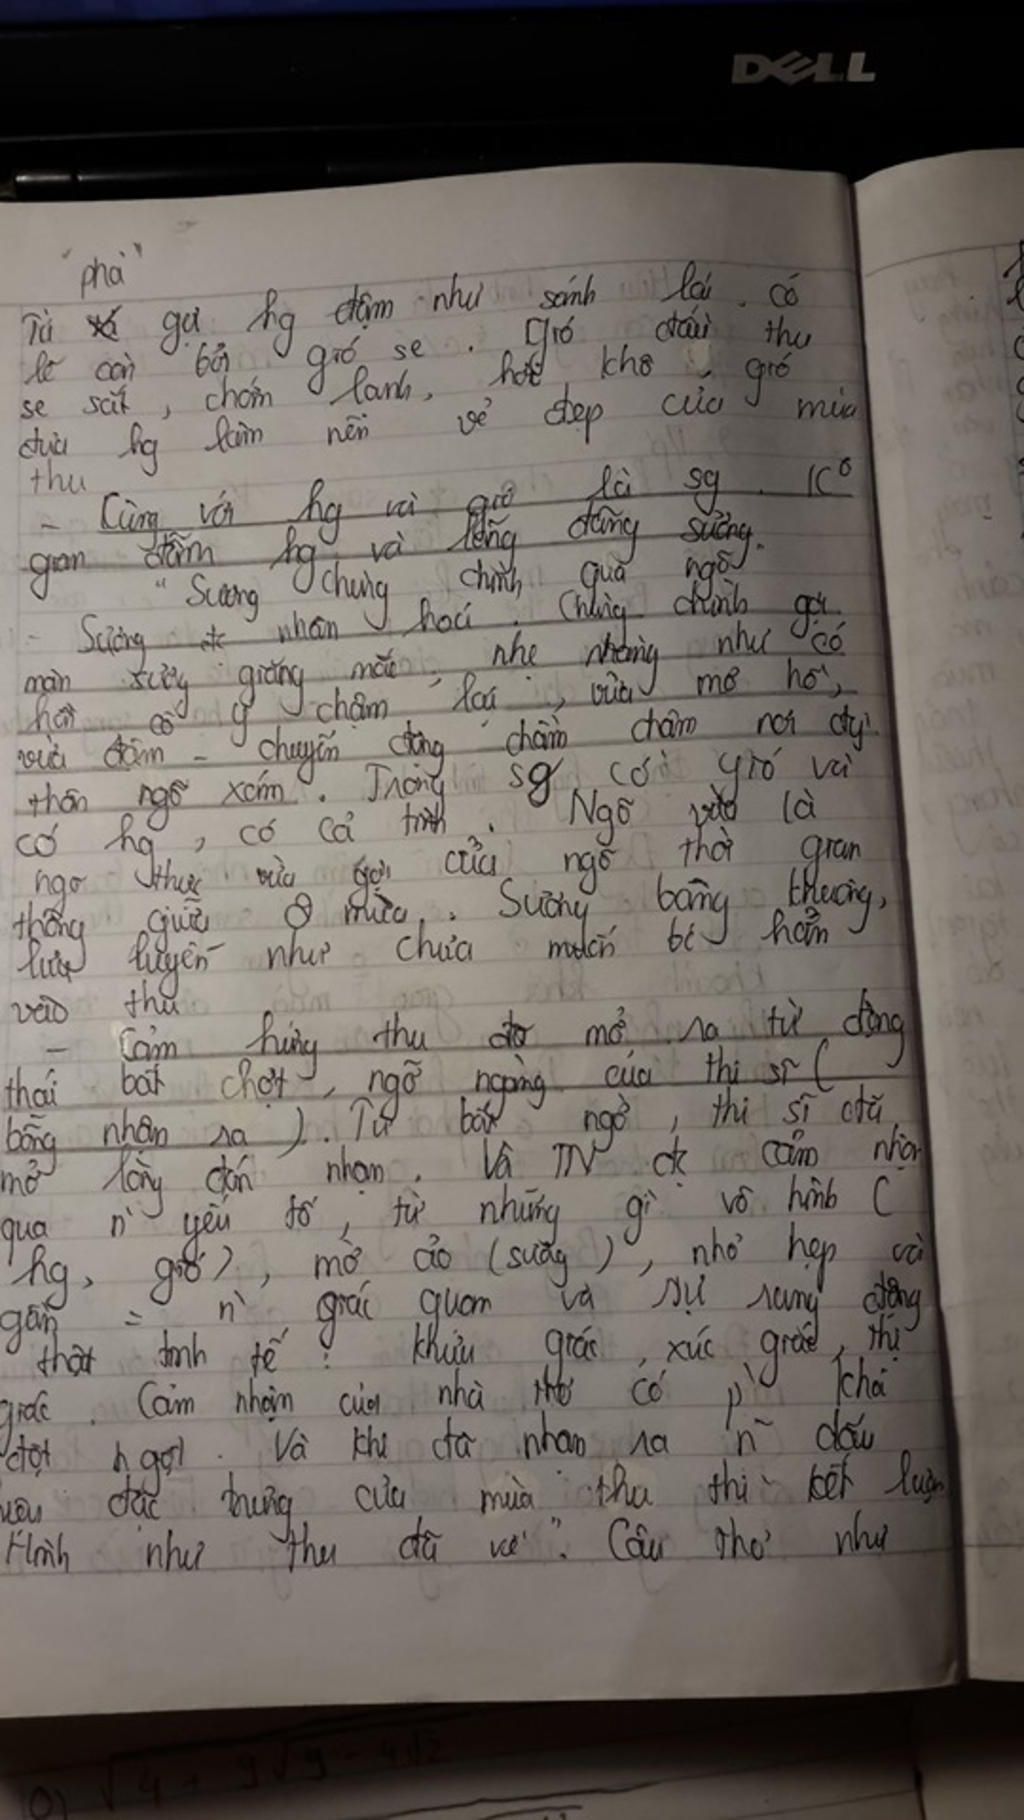 DELL
"phả"
Từ gợi hg đậm như sánh lại. có
lẽ còn bởi gió se. Gió đầu thu
se sắt, chớm lạnh, hơi khô, gió
đưa hg làm nên vẻ đẹp của mùa
thu
- Cùng với hg và gió là sg. Ko
gian đẫm hg và lãng đãng sương.
"Sương chùng chình qua ngõ"
- Sương đc nhân hoá. Chùng chình gợi
màn sương giăng mắc, nhẹ nhàng như cố
hơi cố ý chậm lại, vừa mơ hồ,
vừa đậm - chuyển động chầm chậm nơi đg
thôn ngõ xóm. Trong sg có gió và
có hg, có cả tình. Ngõ vừa là
ngõ thực vừa gợi cửa ngõ thời gian
thông giữa 2 mùa. Sương bâng khuâng,
lưu luyến như chưa muốn bc hẳn
vào thu
- Cảm hứng thu đc mở ra từ động
thái bất chợt, ngỡ ngàng của thi sĩ (
bỗng nhận ra). Từ bất ngờ, thi sĩ đã
mở lòng đón nhận. Và TN đc cảm nhận
qua n~ yếu tố, từ những gì vô hình (
hg, gió), mờ ảo (sương), nhỏ hẹp và
gần = n~ giác quan và sự rung động
thật tinh tế: khứu giác, xúc giác, thị
giác. Cảm nhận của nhà thơ có p` khá
đột ngột. Và khi đã nhận ra n~ dấu
hiệu đặc trưng của mùa thu thì kết luận
Hình như thu đã về". Câu thơ như
√4 + √9 - 4√2